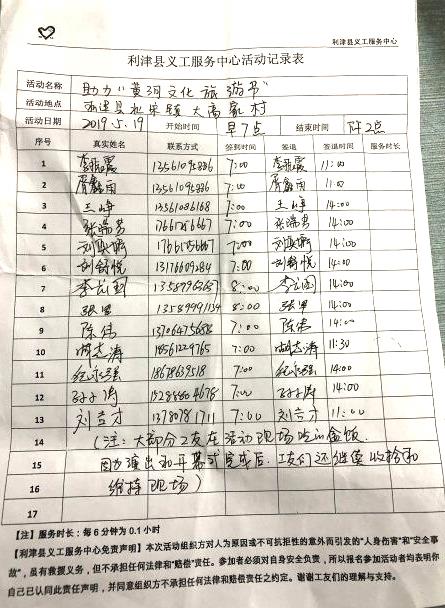 利津县义工服务中心
利津县义工服务中心活动记录表
活动名称 助力"黄河文化旅游节"
活动地点 利津县北宋镇大高家村
活动日期 2019.5.19 开始时间 早7点 结束时间 下2点
序号 真实姓名 联系方式 签到时间 签退 签退时间 服务时长
1 7:00 11:00
2 13561095886 7:00 11:00
3 王峥 13561086168 7:00 王峥 14:00
4 张瑞芳 7:00 张瑞芳 14:00
5 7:00 14:00
6 刘舒悦 13176609284 7:00 刘舒悦 14:00
7 8:00 14:00
8 张军 8:00 张军 14:00
9 陈伟 7:00 陈伟 14:00
10 胡志涛 18561229765 7:00 胡志涛 11:30
11 纪永强 18678639518 7:00 纪永强 14:00
12 孙涛 7:00 孙涛 14:00
13 刘吉才 13780781711 7:00 刘吉才 11:00
14 (注:大部分工友在活动现场吃的盒饭.
15 因为演出和开幕式完成后,工友们还继续收拾和
16 维持现场)
17
【注】服务时长:每6分钟为0.1小时
【利津县义工服务中心免责声明】本次活动组织方对人为原因或不可抗拒性的意外而引发的"人身伤害"和"安全事
故",虽有救援义务,但不承担任何法律和"赔偿"责任。参加者必须对自身安全负责,所以报名参加活动者均表明你
自己已认同此责任声明,并同意组织方不承担任何法律和赔偿责任之约定。谢谢工友们的理解与支持。